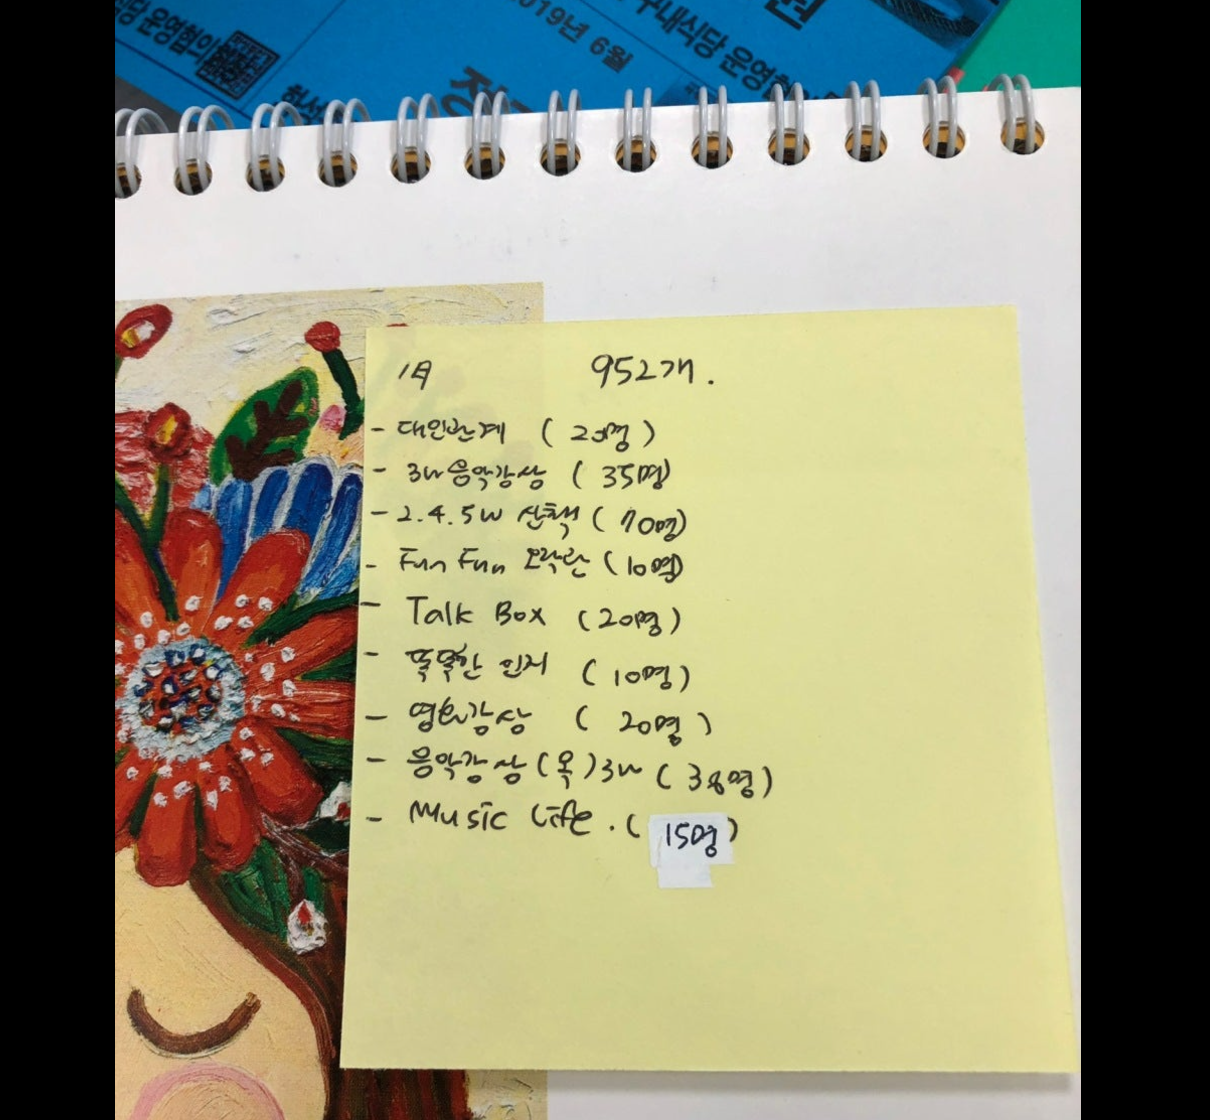 당 운영협의회
2019년 6월
구내식당 운영협
1月 952개.
- 대인관계 (20명)
- 3w 음악감상 (35명)
- 2.4.5w 산책 (70명)
- Fun Fun 오락관 (10명)
- Talk Box (20명)
- 똑똑한 인지 (10명)
- 영화감상 (20명)
- 음악감상(목)3w (38명)
- Music Life. (15명)